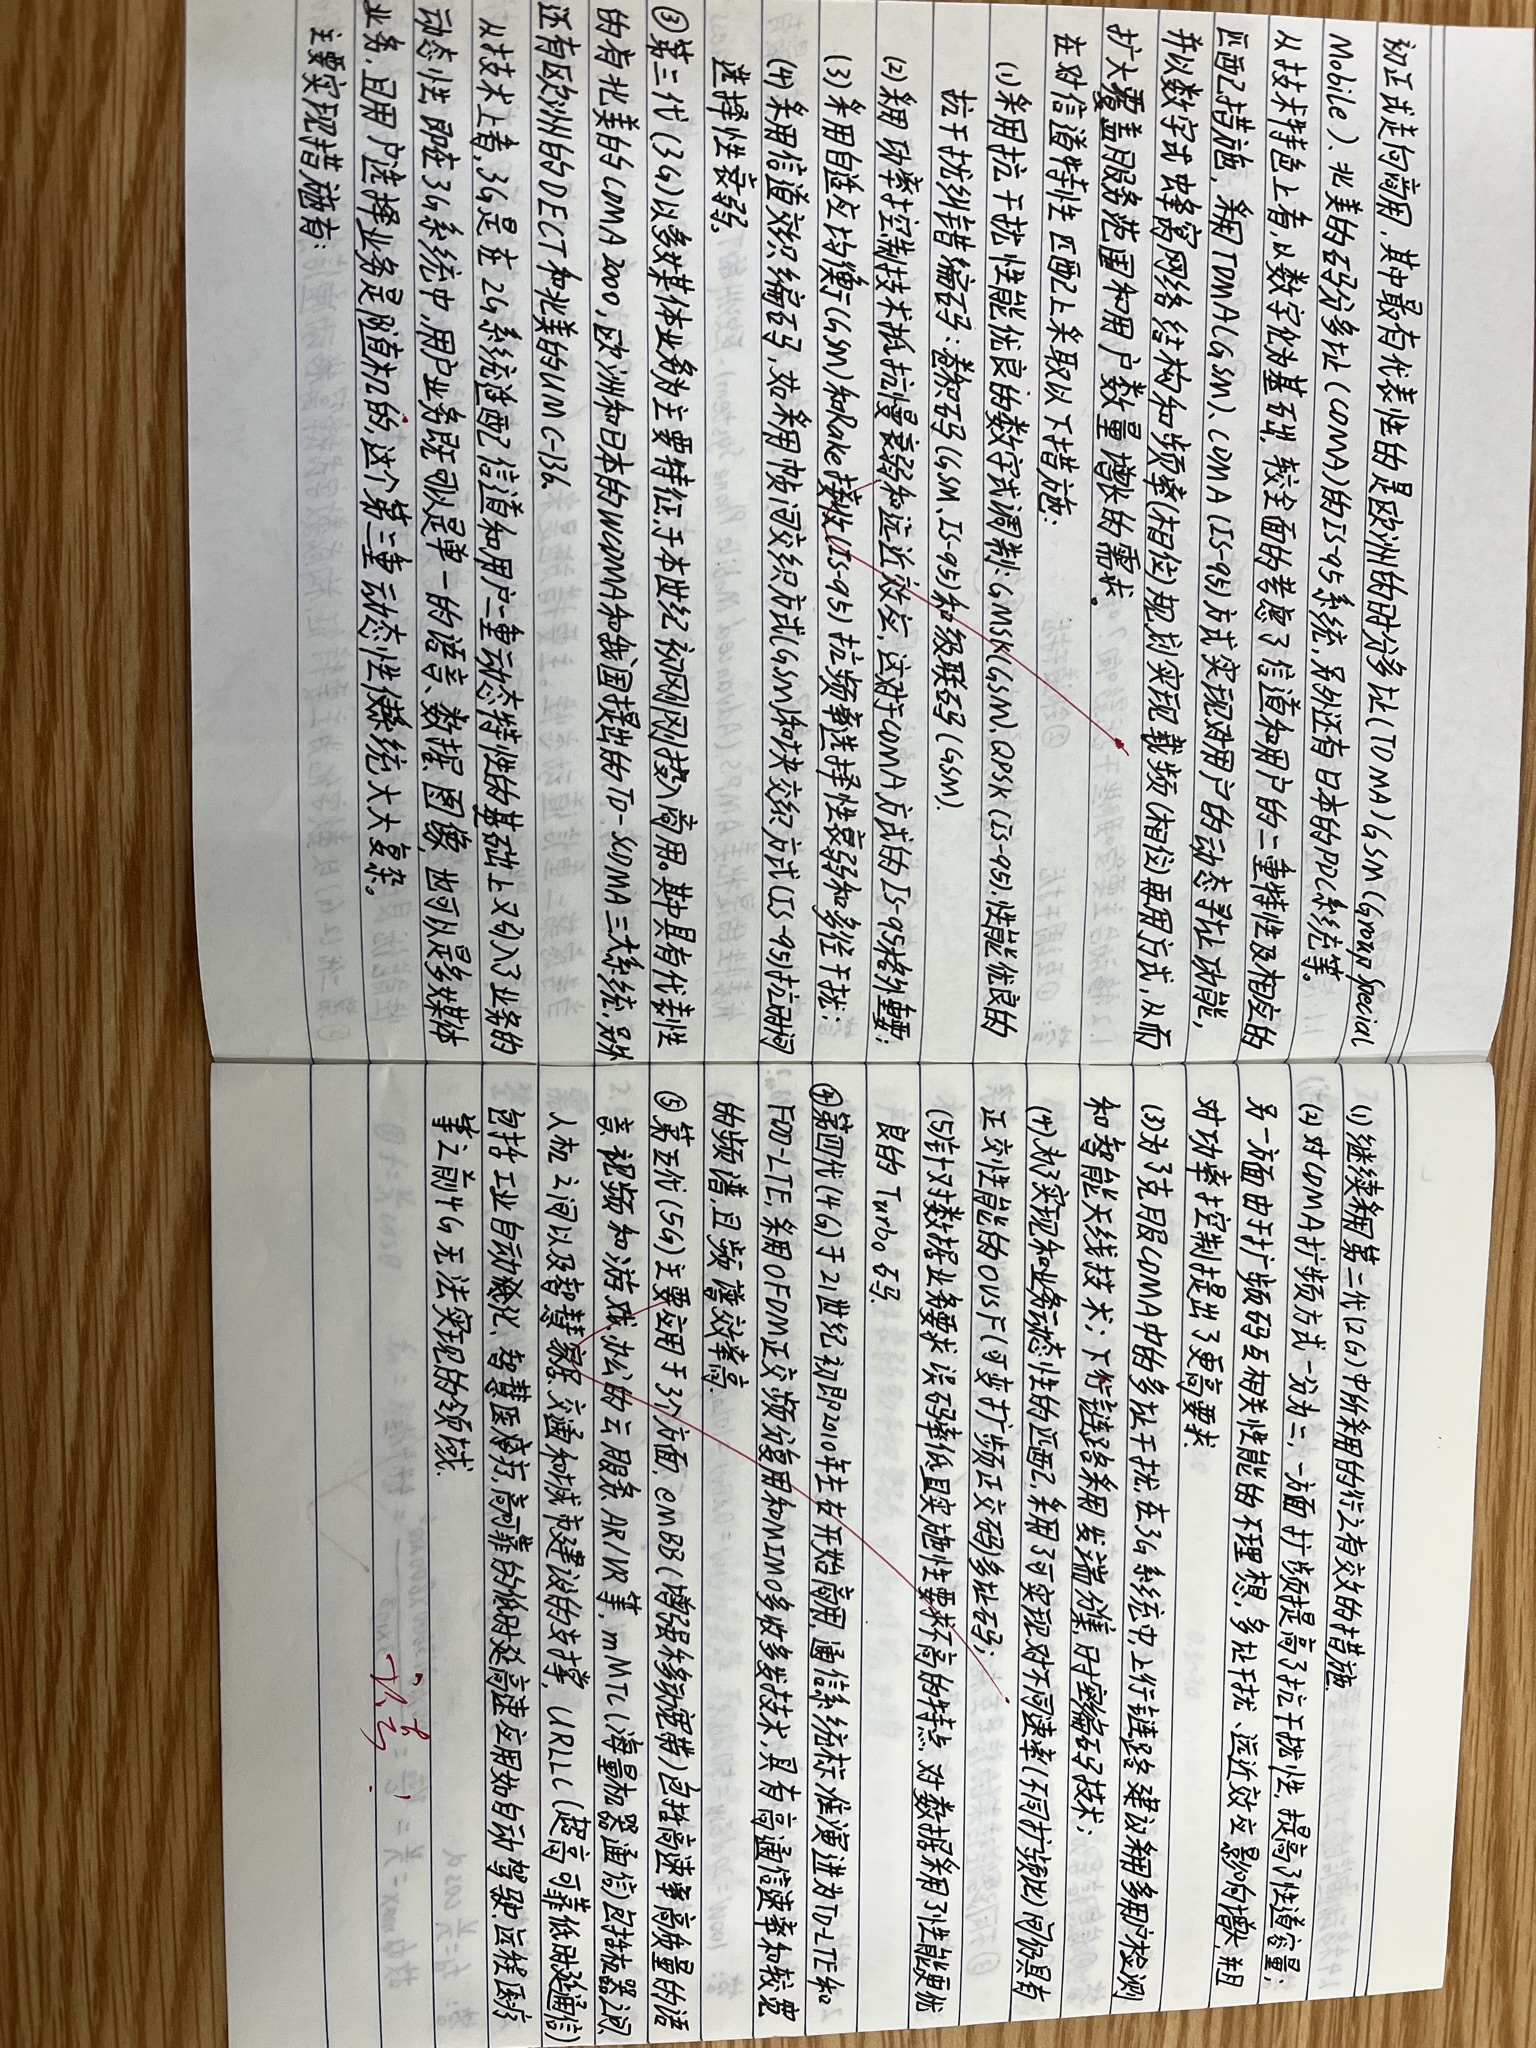 初正式走向商用,其中最有代表性的是欧洲的时分多址(TDMA)GSM(Group Special
Mobile)、北美的码分多址(CDMA)的IS-95系统,另外还有日本的PDC系统等。
从技术特色上看,以数字化为基础,较全面的考虑了信道和用户的二重特性及相应的
匹配措施,采用TDMA(GSM)、CDMA(IS-95)方式实现对用户的动态寻址功能,
并以数字式蜂窝网络结构和频率(相位)规划实现载频(相位)再用方式,从而
扩大覆盖服务范围和用户数量增长的需求。
在对信道特性匹配上采取以下措施:
(1)采用抗干扰性能优良的数字式调制:GMSK(GSM)、QPSK(IS-95),性能优良的
抗干扰纠错编码:卷积码(GSM、IS-95)和级联码(GSM).
(2)采用功率控制技术抵抗慢衰弱和远近效应,这对于CDMA方式的IS-95格外重要;
(3)采用自适应均衡(GSM)和Rake接收(IS-95)抗频率选择性衰弱和多径干扰;
(4)采用信道交织编码,如采用帧间交织方式(GSM)和块交织方式(IS-95)抗时间
选择性衰弱.
③第三代(3G)以多媒体业务为主要特征,于本世纪初刚刚投入商用。其中具有代表性
的有北美的CDMA2000,欧洲和日本的WCDMA和我国提出的TD-SCDMA三大系统,另外
还有欧洲的DECT和北美的UMC-136.
从技术上看,3G是在2G系统适配信道和用户二重动态特性的基础上又引入了业务的
动态性,即在3G系统中,用户业务既可以是单一的语言、数据、图像,也可以是多媒体
业务,且用户选择业务是随机的,这个第三重动态性使系统大大复杂。
主要实现措施有:
(1)继续采用第二代(2G)中所采用的行之有效的措施.
(2)对CDMA扩频方式一分为二,一方面扩频提高了抗干扰性,提高了信道容量;
另一方面由于扩频码互相关性能的不理想,多址干扰、远近效应影响增大,并且
对功率控制提出了更高要求.
(3)为了克服CDMA中的多址干扰,在3G系统中,上行链路建议采用多用户检测
和智能天线技术;下行链路采用发端分集、时空编码技术;
(4)为了实现和业务动态性的匹配,采用了可实现对不同速率(不同扩频比)间仍具有
正交性能的OVSF(可变扩频正交码)多址码;
(5)针对数据业务要求误码率低且实施性要求不高的特点,对数据采用了性能更优
良的Turbo码.
④第四代(4G)于21世纪初即2010年左右开始商用,通信系统标准演进为TD-LTE和
FDD-LTE,采用OFDM正交频分复用和MIMO多收多发技术,具有高通信速率和较宽
的频谱,且频谱效率高.
⑤第五代(5G)主要应用于3个方面,eMBB(增强移动宽带)包括高速率高质量的语
音、视频和游戏,办公的云服务、AR/VR等,mMTC(海量机器通信)包括机器间、
人机之间以及智慧家居、交通和城市建设的支撑,URLLC(超高可靠低时延通信)
包括工业自动化、智慧医疗,高可靠的低时延高速应用如自动驾驶、远程医疗
等之前4G无法实现的领域.